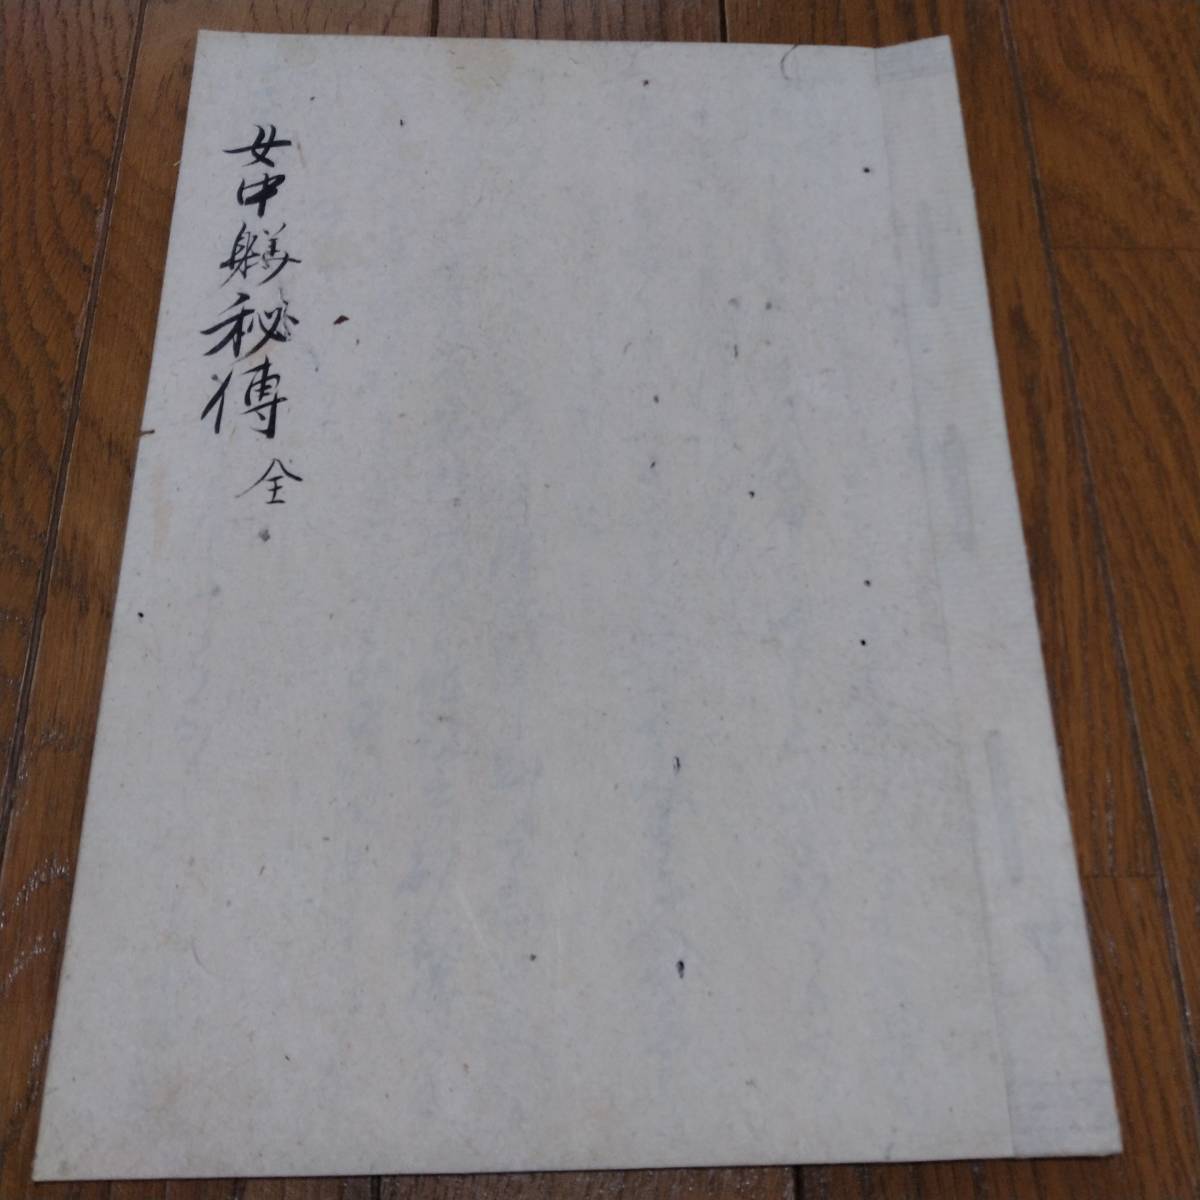 女中躾秘傳 全